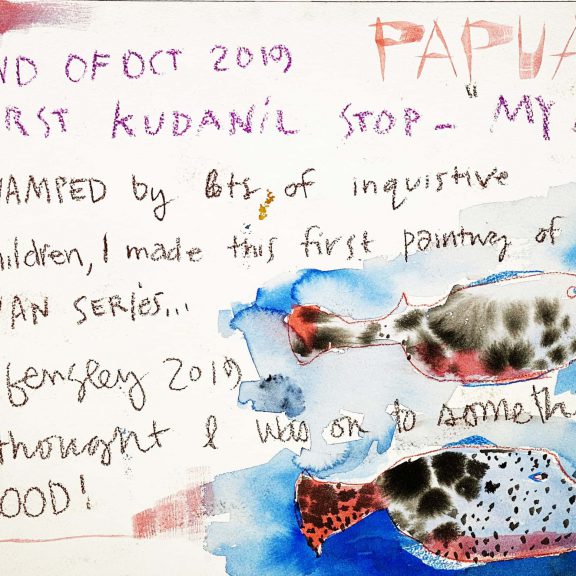 PAPUA
ND OF OCT 2019
RST KUDANIL STOP - "MY
WAMPED by lots of inquistive
hildren, I made this first painting of
AN SERIES...
2019
thought I was on to someth
OOD!